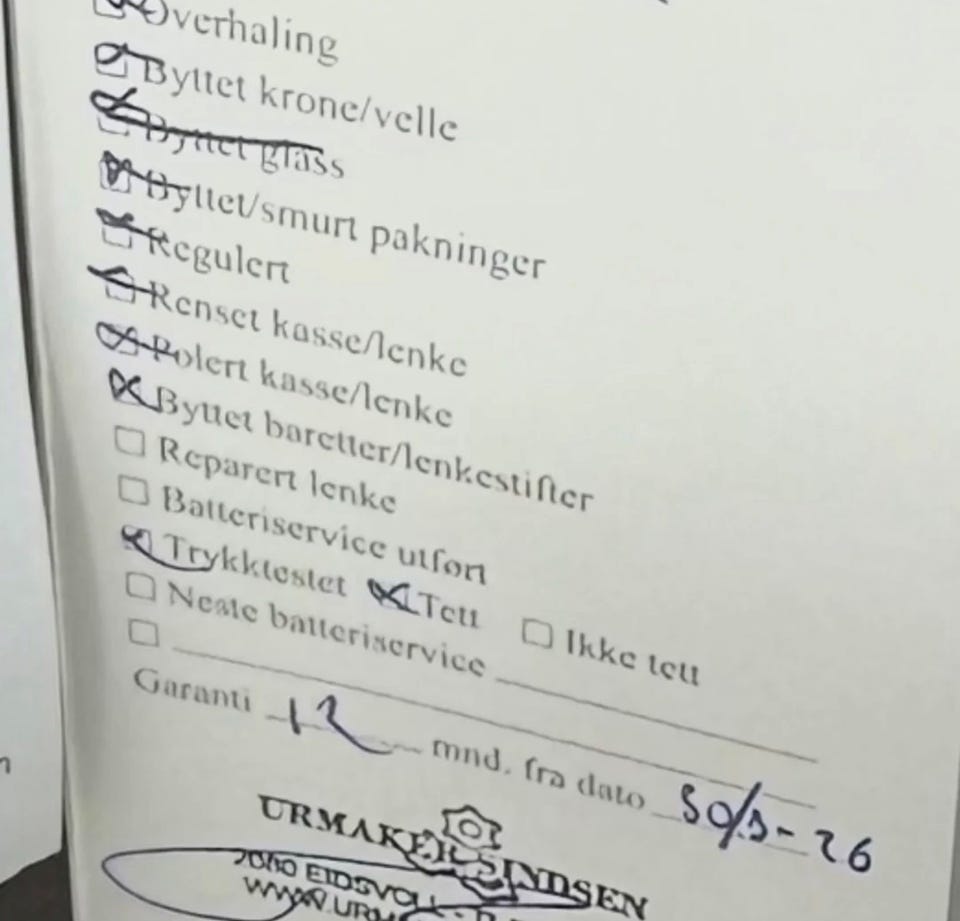 Overhaling
Byttet krone/velle
Byttet glass
Byttet/smurt pakninger
Regulert
Renset kasse/lenke
Polert kasse/lenke
Byttet baretter/lenkestifter
Reparert lenke
Batteriservice utført
Trykktestet Tett Ikke tett
Neste batteriservice
Garanti 12 mnd. fra dato 30/3-26
URMAKER SINDSEN
2080 EIDSVOLL
WWW.URM